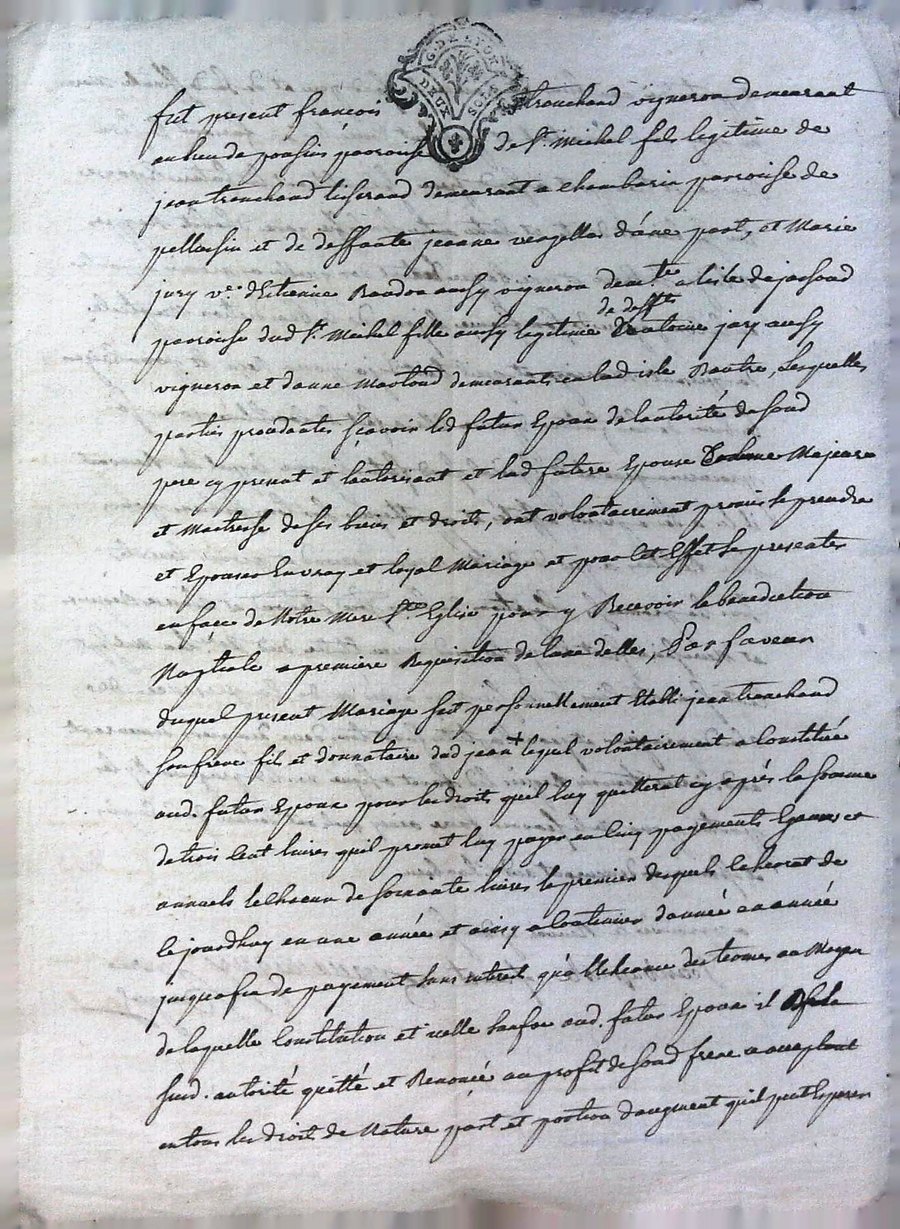 G. DE LYON
DEUX SOLS
fut present francois trenchand vigneron demeurant
au lieu de poassin parroisse de St. Michel fils legitime de
jean trenchand tisserand demeurant a chambarin parroisse de
pellassin et de deffante jeanne vengelles d'une part, et Marie
jury ve. d'Etienne Baudon aussy vigneron demte. a lisle de
parroisse dud St. Michel fille aussy legitime de defft antoine jary aussy
vigneron et danne demeurants en lad isle Bautre, Lesquelles
parties procedantes sçavoir led futur Epoux de lautorité de sond
pere cy present et lautorisant et lad future Epouse Comme Majeure
et Maitresse de ses biens et droits, ont volontairement promis se prendre
et Epouser En vray et loyal Mariage et pour Cet Effet se presenter
en face de Notre Mere Ste Eglise pour y Recevoir la benediction
Nuptiale a premiere Requisition de lune delles, En faveur
duquel present Mariage sest personnellement Etabli jean trenchand
son frere fils et donnataire dud jean + lequel volontairement a Constitué
aud. futur Epoux pour les droits quil luy quitterat cy après la somme
de trois Cent livres quil promet luy payer en Cinq payements Egaux et
annuels le Chacun de soixante livres le premier desquels se ferat de
ce jourdhuy en une année et ainsy a Continuer d'année en année
jusqua fin de payement sans interet qu'a lecheance des termes au Moyen
de laquelle Constitution et icelle sauve aud. futur Epoux il
sud. autorité quitté et Renoncé au profit de sond frere acceptant
en tous les droits de Nature part et portion d'augment quil peut Esperer